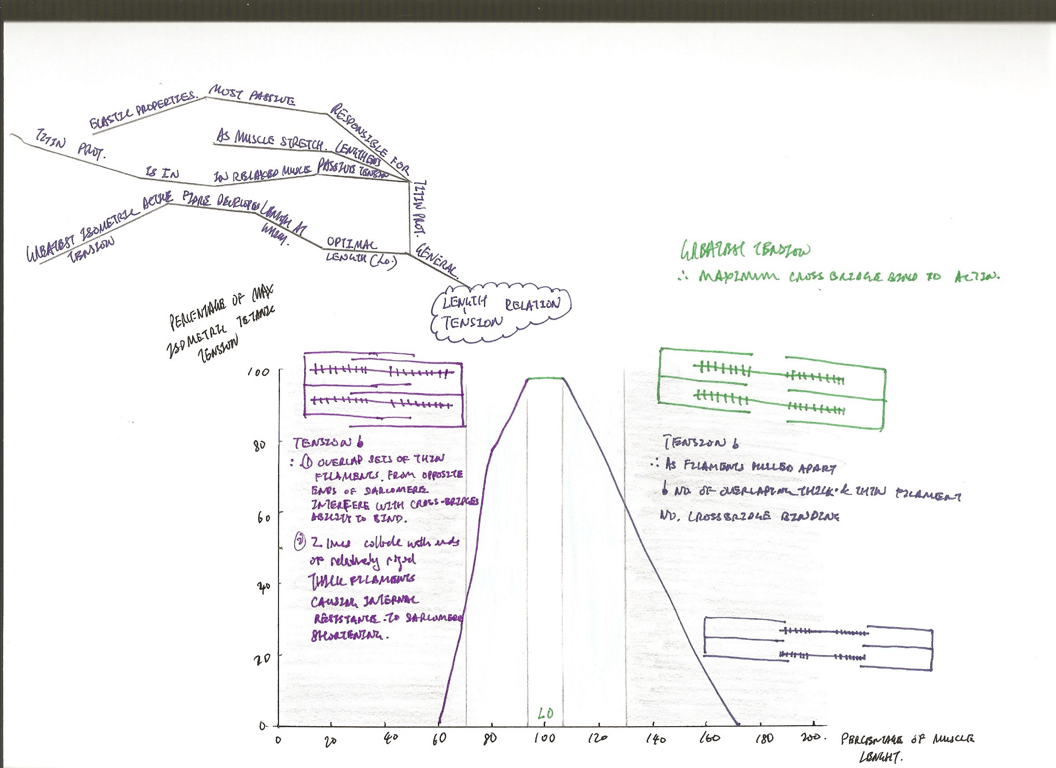 ELASTIC PROPERTIES.
MOST PASSIVE
RESPONSIBLE FOR
AS MUSCLE STRETCH.
LENGTHENS
TITIN PROT.
IS IN
IN RELAXED MUSCLE
PASSIVE TENSION
TITIN PROT.
GREATEST ISOMETRIC ACTIVE
TENSION
FIBRE DEVELOPES
LENGTH AT
WHICH.
OPTIMAL
LENGTH (Lo.)
GENERAL.
LENGTH RELATION
TENSION
GREATEST TENSION
∴ MAXIMUM CROSS BRIDGE BIND TO ACTIN.
PERCENTAGE OF MAX
ISOMETRIC TETANIC
TENSION
100
80
60
40
20
0
TENSION ↓
: ① OVERLAP SETS OF THIN
FILAMENTS. FROM OPPOSITE
ENDS OF SARCOMERE
INTERFERE WITH CROSS-BRIDGES
ABILITY TO BIND.
② Z lines collide with ends
of relatively rigid
THICK FILAMENTS
CAUSING INTERNAL
RESISTANCE TO SARCOMERE
SHORTENING.
TENSION ↓
∴ AS FILAMENTS PULLED APART
↓ NO OF OVERLAPING THICK & THIN FILAMENT
NO. CROSSBRIDGE BINDING
LO
0 20 40 60 80 100 120 140 160 180 200.
PERCENTAGE OF MUSCLE
LENGHT.